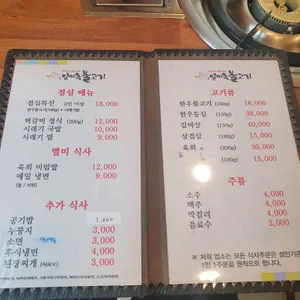 불고기
점심 메뉴
점심특선 2인 이상 18,000
떡갈비 정식 (200g) 12,000
시래기 국밥 10,000
시래기 밥 9,000
별미 식사
육회 비빔밥 12,000
메밀 냉면 9,000
(물 / 비빔)
추가 식사
공기밥 1,000
누룽지 3,000
소면 3,000
후식냉면 4,000
된장찌개 3,000
불고기
고기류
한우불고기 (150g) 16,000
한우등심 38,000
갈비살 40,000
삼겹살 15,000
육회
(100g) 15,000
주류
소주 4,000
맥주 4,000
막걸리 4,000
음료수 2,000
※ 저희 업소는 모든 식사주문은 성인기준
1인 1주문을 원칙으로 합니다.